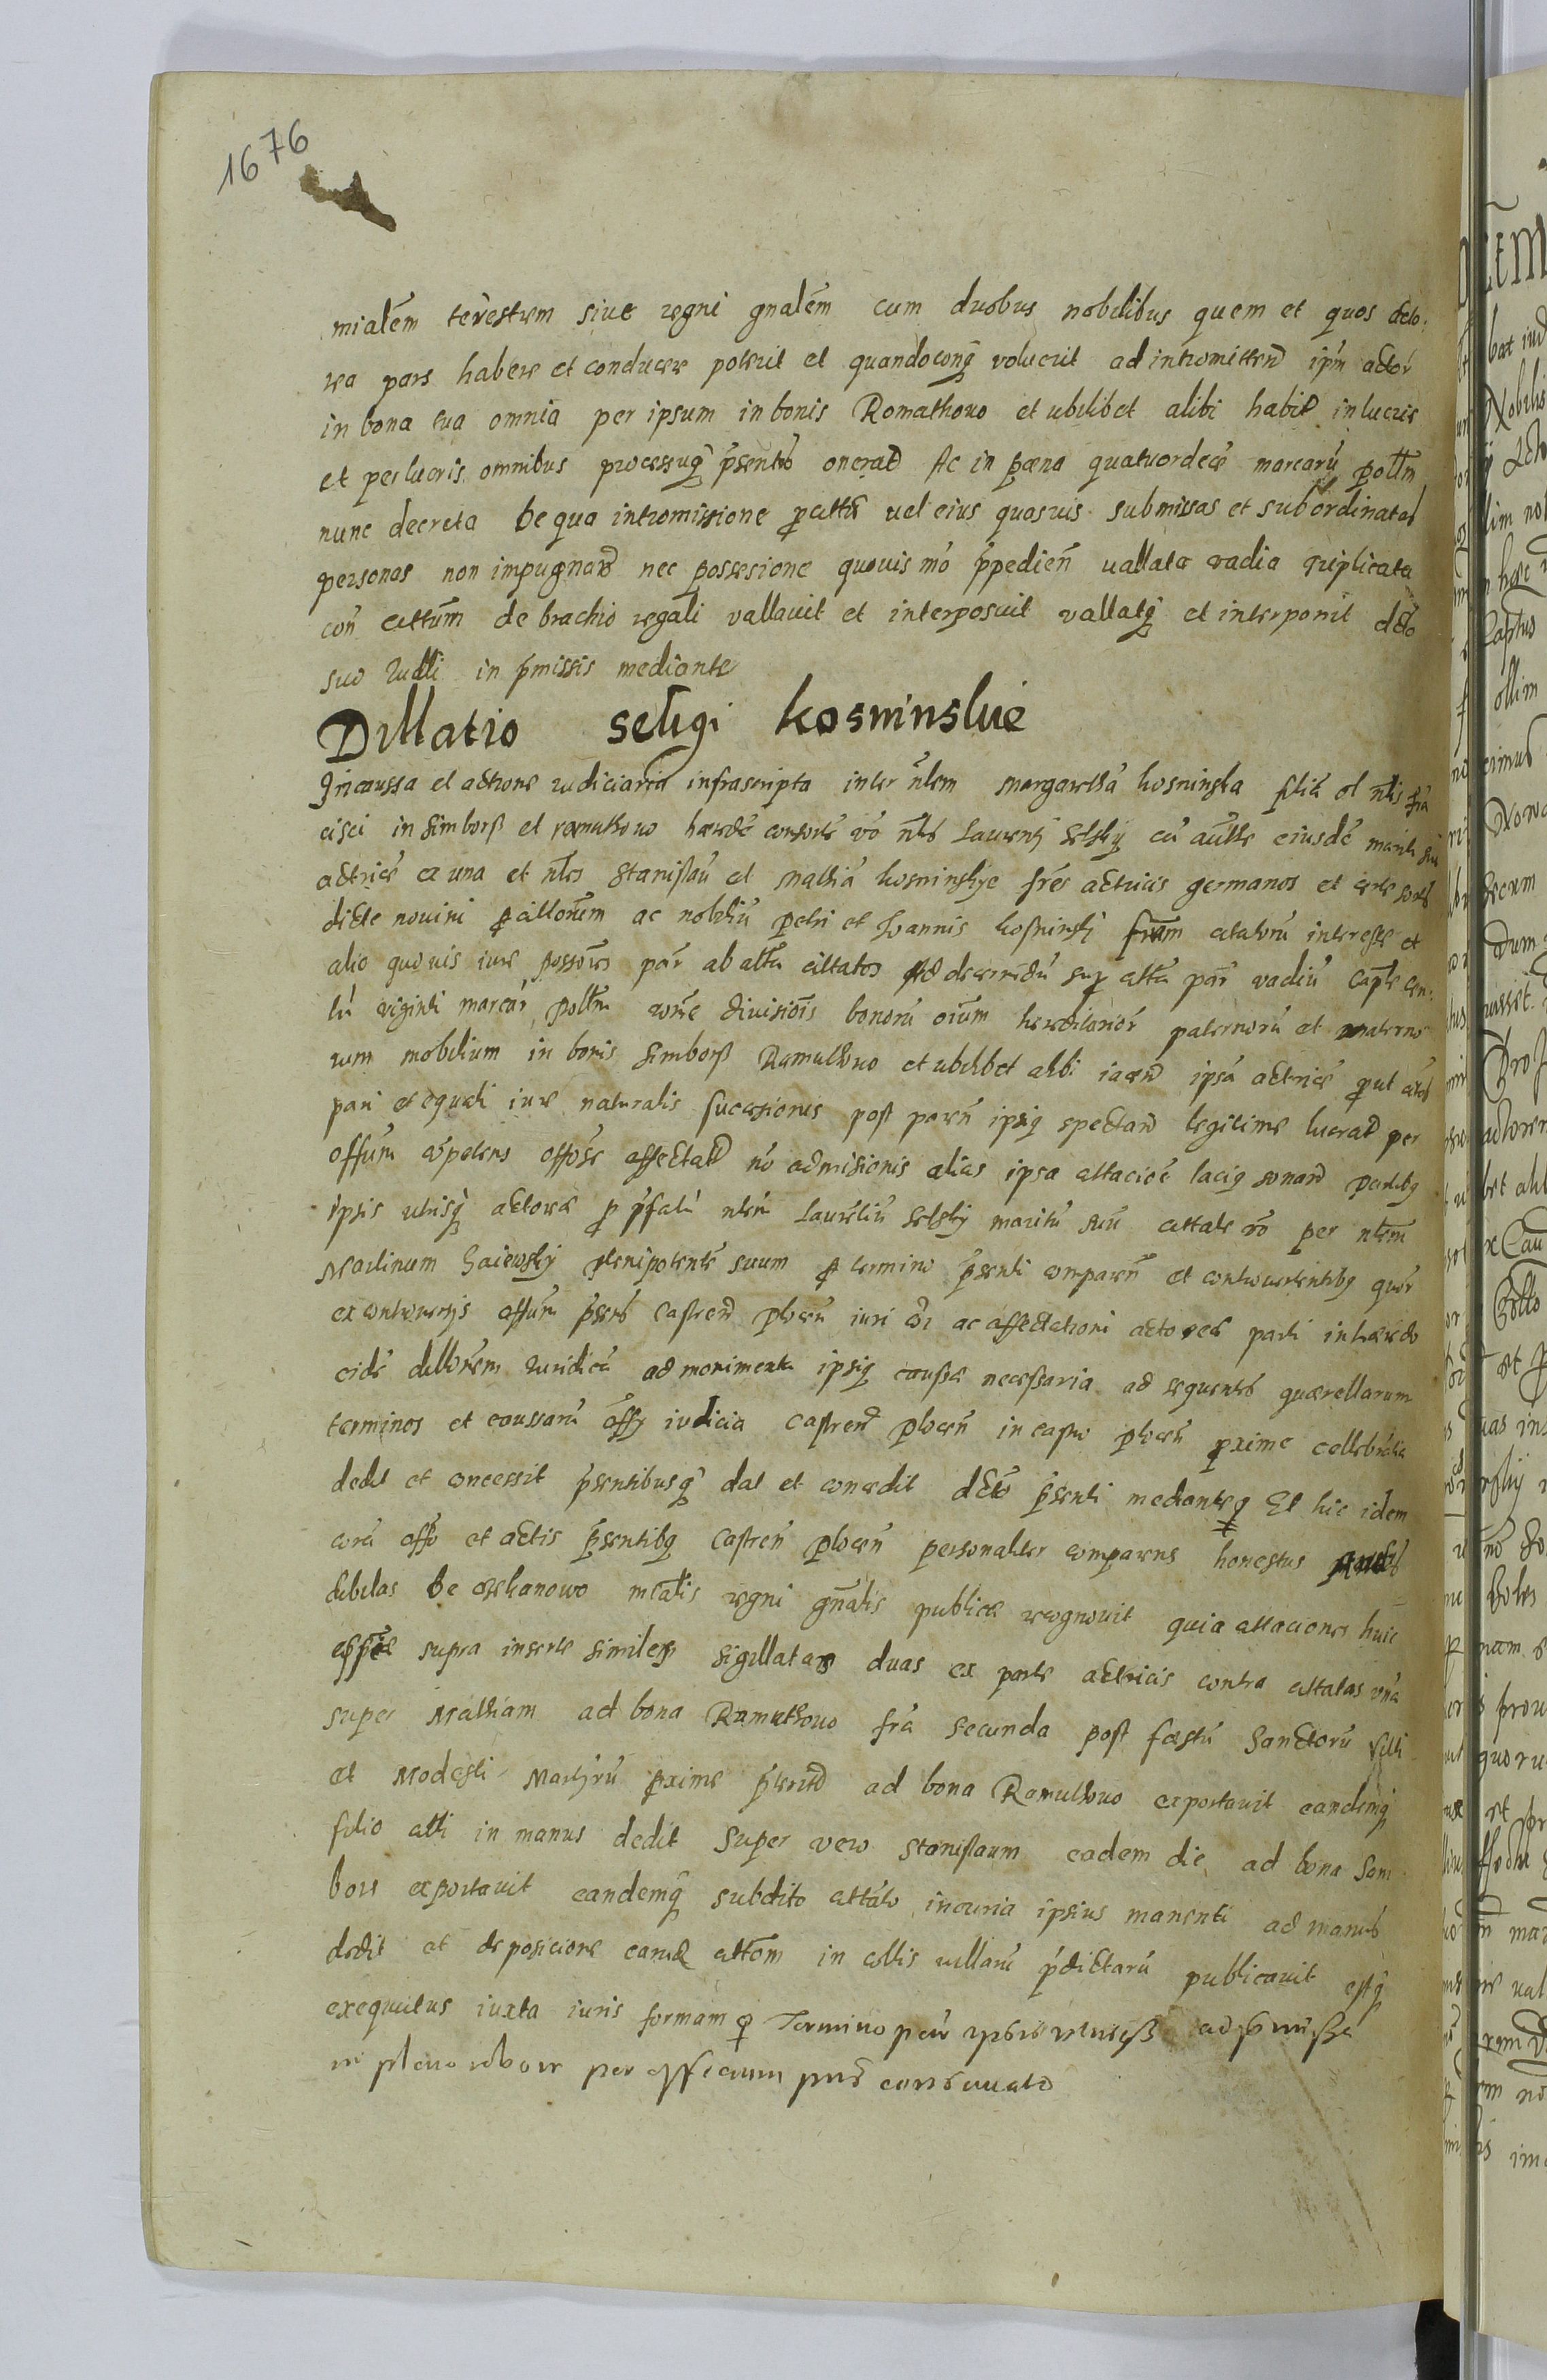 1676
mialem terestrem siue regni gnalem cum duobus nobilibus quem et quos acto
rea pars habere et conducere poterit et quandocunq voluerit ad intromittend ipm actor
in bona sua omnia per ipsum in bonis Romathowo et ubilibet alibi habit in lucris
et perlucris omnibus processuq psentib onerat Ac in pæna quatuordecē marcarū polln
nunc decreta de qua intromissione p cittū uel eius quasuis submissas et subordinatas
personas non impugnand nec possesione quouis mō ppedien uallata vadia triplicata
con cittum de brachio regali vallauit et interposuit vallatq et interponit decto
suo iudli in pmissis mediante
Dillatio selsgi kosninskie
In caussa et actione iudiciaria infrascripta inter nlem margaretā kosninska filiā ol nlis frā
cisci in Simbors et ramuthowo hærede consorte vō nlis Laurentj selskij cū autte eiusdē mariti sui
actricē ex una et nles Stanislaū et Mathiā kosninskye frēs actricis germanos et certe sortis
dicte nouini p cittonem ac nobiliū petri et Joannis kosninskj fram citatorū interesse et
alio quouis iure possores par ab altā cittatos Ad decernedū sup cittā par vadiū capte cen
tū viginti marcar polln rōne diuisiois bonorū oium hereditarior paternorū et materno
rum mobilium in bonis Simbors Ramuthowo et ubilibet alibi iacen ipsā actricē put citos
pari et equali iure naturalis sucessionis post paren ipsiq spectan legitime lucrat per
offum cōpetens offose affectat nō admisionis alias ipsa cittacioē laciq sonand partibq
ipsis utrisq actorea p pfatū nlem Laurētiū selskij maritū suū cittate vō per nlem
Martinum Gaiewskij plenipotentē suum p termino psenti comparen et controuertentibq quor
ex controuersijs offum psens Castren plocen iuri cōi ac affectationi actoreæ parti inhærēdo
eidē dillōnem iuridicā ad monimenta ipsiq caussæ necessaria ad sequentes quærellarum
terminos et caussarū offj iudicia castren plocen in castro plocen pxime cellebrāda
dedit et concessit psentibusq dat et concedit decto psenti mediante Et hic idem
corā offo et actis psentibq Castren plocen personaliter comparens honestus
de orszhanowo mealis regni gnalis publice recognouit quia cittaciones huic
supra inserte similes sigillatas duas ex parte actricis contra cittatas unā
super Mathiam ad bona Ramuthowo friā secunda post fæstū Sanctorū Viti
et Modesti Martyrū pxime pterit ad bona Ramuthowo exportauit eandemq
filio citti in manus dedit Super vero Stanislaum eadem die ad bona Sam
bors exportauit eandemq subdito cittato in curia ipsius manenti ad manus
dedit et deposicione earud cittom in illis uillarū pdictarū publicauit estq
exequutus iuxta iuris formam p Termino par
in pleno robore per officium pns conseruato